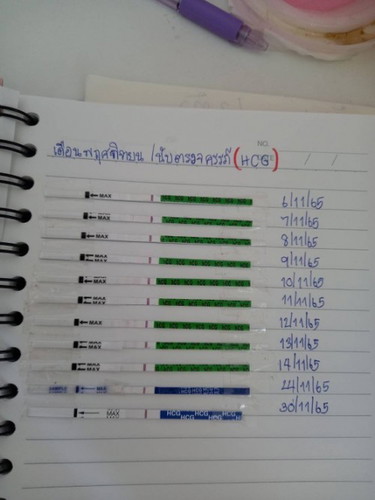 เดือนพฤศจิกายน /นับตรวจครรภ์ (HCG) / /
NO.
MAX 6/11/65
MAX 7/11/65
MAX 8/11/65
MAX 9/11/65
MAX 10/11/65
MAX 11/11/65
MAX 12/11/65
MAX 13/11/65
MAX 14/11/65
24/11/65
MAX HCG HCG HCG HCG 30/11/65